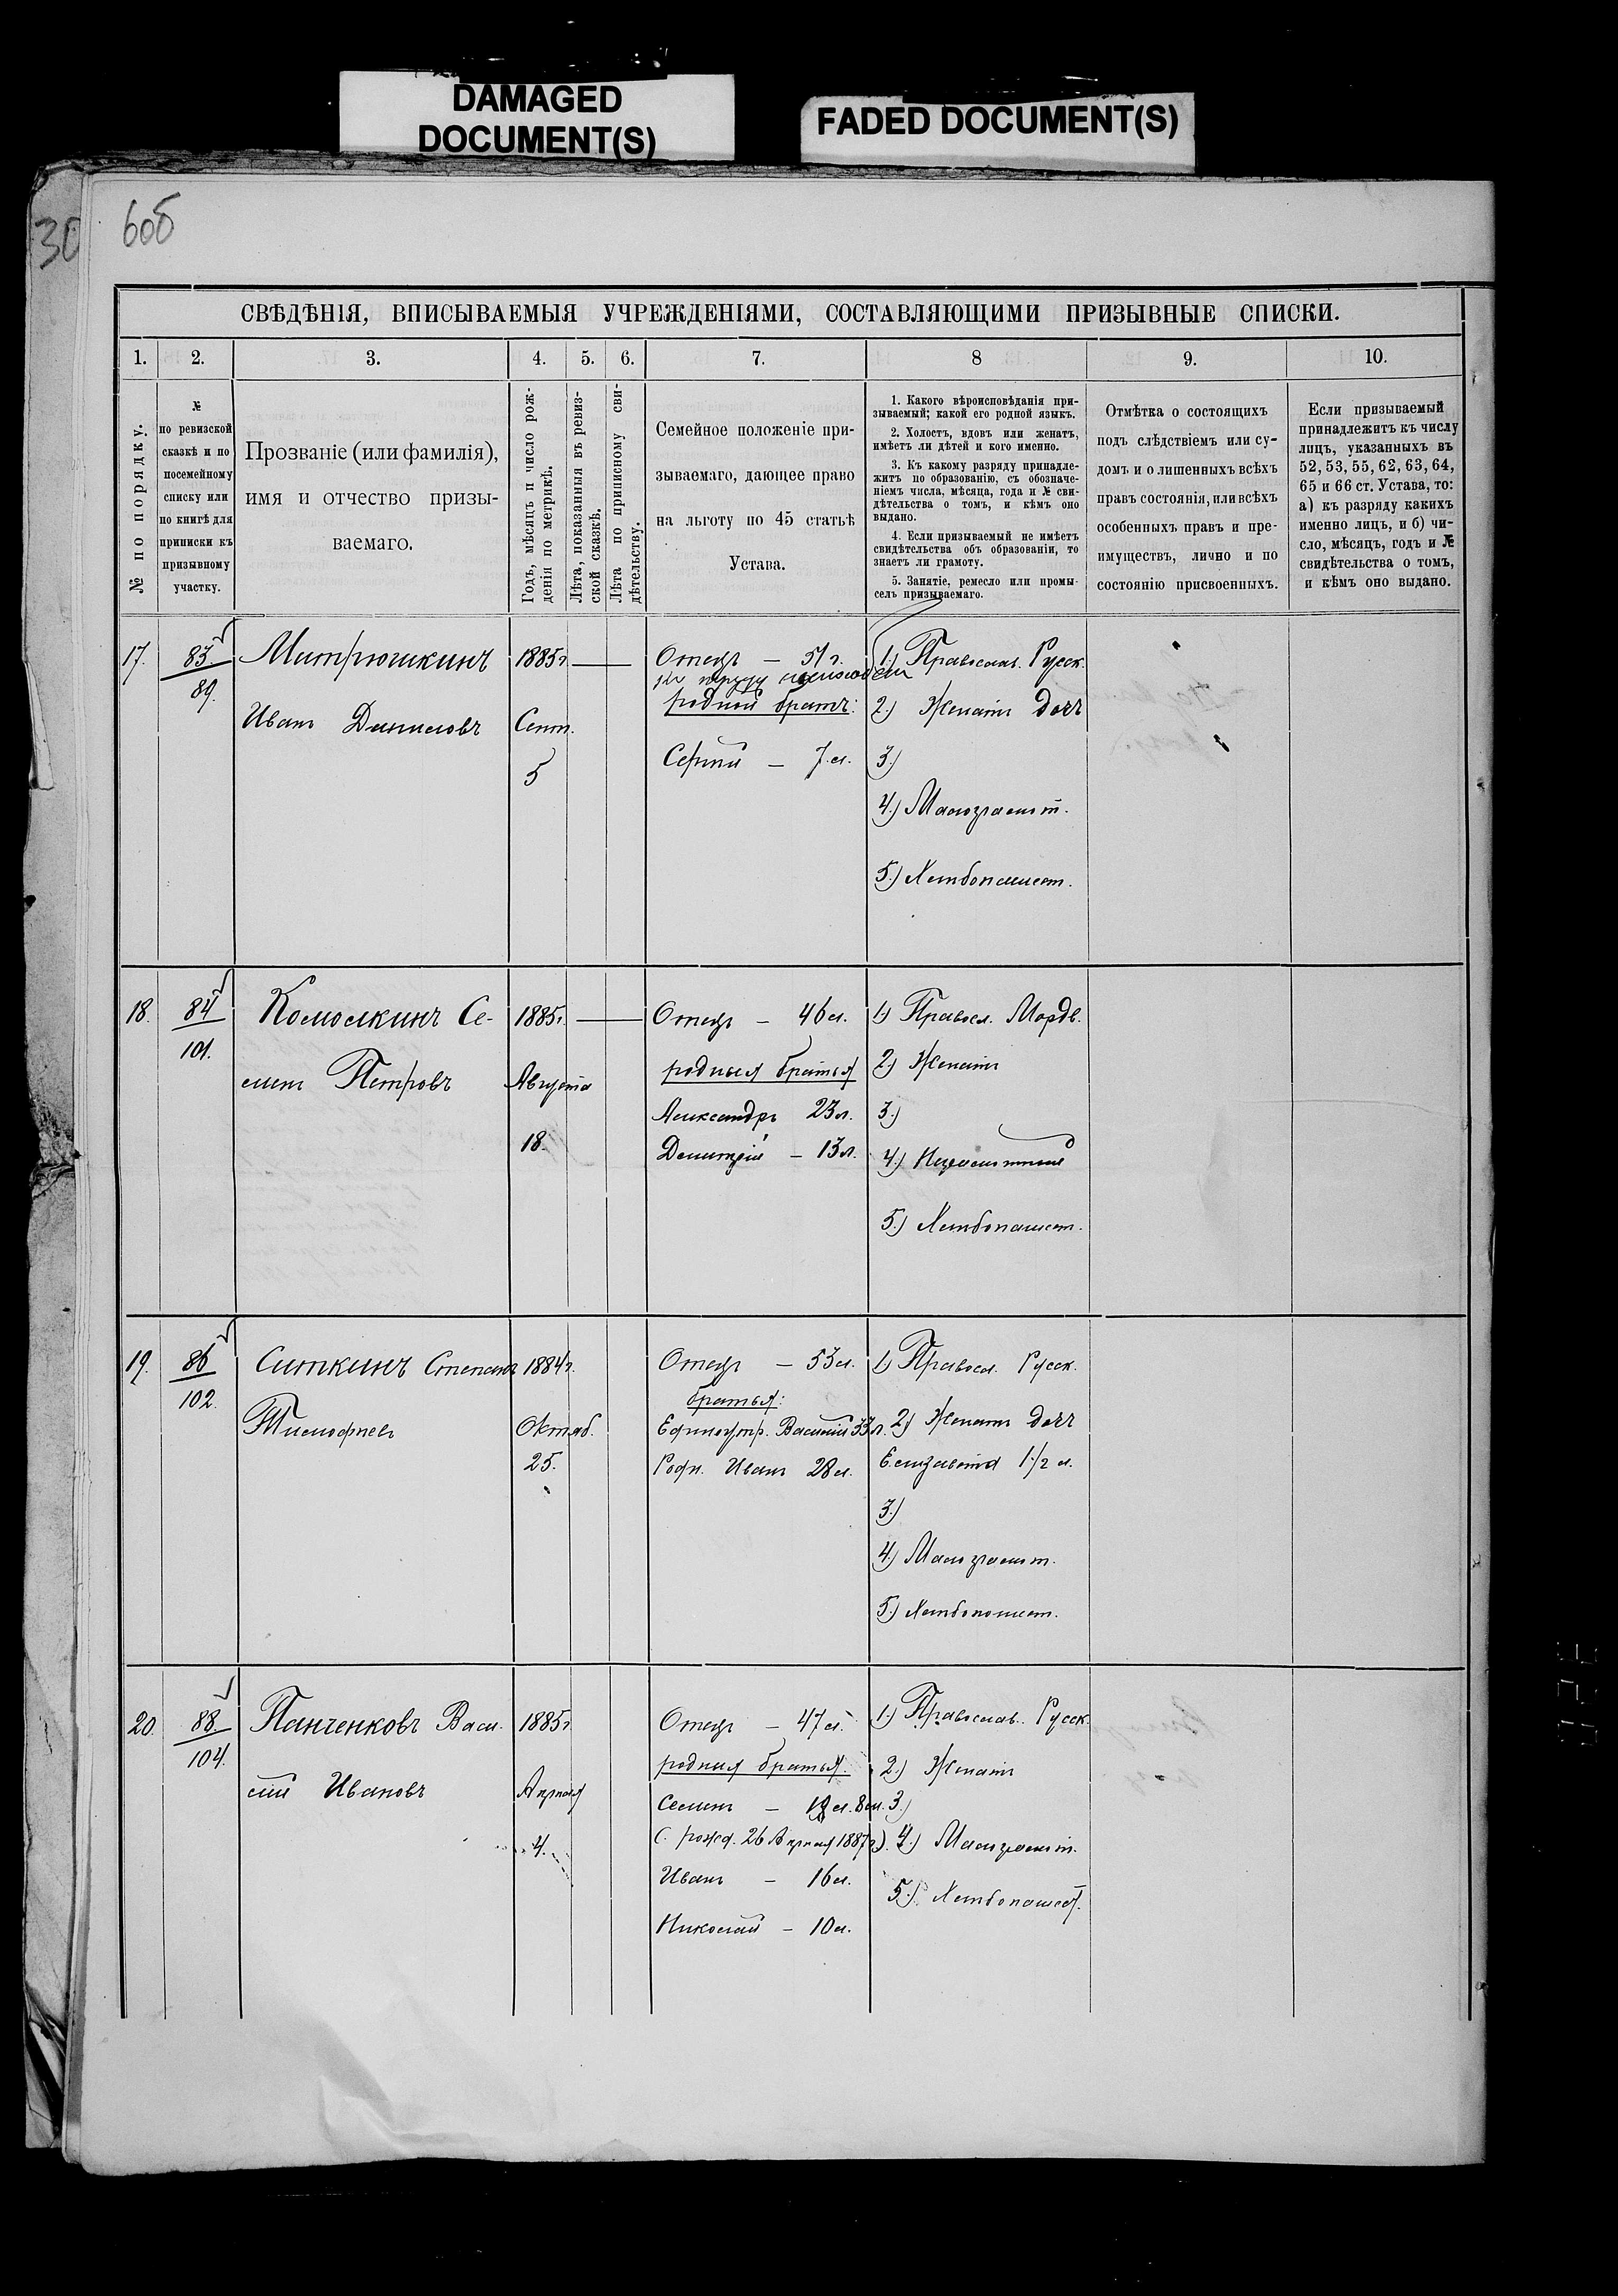 DAMAGED
DOCUMENT(S)
FADED DOCUMENT(S)
30
60б
СВѢДѢНІЯ, ВПИСЫВАЕМЫЯ УЧРЕЖДЕНІЯМИ, СОСТАВЛЯЮЩИМИ ПРИЗЫВНЫЕ СПИСКИ.
1. 2. 3. 4. 5. 6. 7. 8 9. 10.
№ по порядку.
№
по ревизской
сказкѣ и по
посемейному
списку или
по книгѣ для
приписки къ
призывному
участку.
Прозваніе (или фамилія),
имя и отчество призы-
ваемаго.
Годъ, мѣсяцъ и число рож-
денія по метрикѣ.
Лѣта, показанныя въ ревиз-
ской сказкѣ.
Лѣта по приписному сви-
дѣтельству.
Семейное положеніе при-
зываемаго, дающее право
на льготу по 45 статьѣ
Устава.
1. Какого вѣроисповѣданія при-
зываемый; какой его родной языкъ.
2. Холостъ, вдовъ или женатъ,
имѣетъ ли дѣтей и кого именно.
3. Къ какому разряду принадле-
житъ по образованію, съ обозначе-
ніемъ числа, мѣсяца, года и № сви-
дѣтельства о томъ, и кѣмъ оно
выдано.
4. Если призываемый не имѣетъ
свидѣтельства объ образованіи, то
знаетъ ли грамоту.
5. Занятіе, ремесло или промы-
селъ призываемаго.
Отмѣтка о состоящихъ
подъ слѣдствіемъ или су-
домъ и о лишенныхъ всѣхъ
правъ состоянія, или всѣхъ
особенныхъ правъ и пре-
имуществъ, лично и по
состоянію присвоенныхъ.
Если призываемый
принадлежитъ къ числу
лицъ, указанныхъ въ
52, 53, 55, 62, 63, 64,
65 и 66 ст. Устава, то:
а) къ разряду какихъ
именно лицъ, и б) чи-
сло, мѣсяцъ, годъ и №
свидѣтельства о томъ,
и кѣмъ оно выдано.
17.
83.
89.
Митрюшкинъ
Иванъ Даниловъ
1885г.
Сент.
5
Отецъ — 51 г.
къ труду неспособен
родной братъ:
Сергѣй — 7 л.
1.) Православ. Русск.
2.) Женатъ дочь
3.)
4.) Малограмот.
5.) Хлѣбопашест.
18.
84
101.
Комолкинъ Се-
менъ Петровъ
1885г.
Августа
18.
Отецъ — 46 л.
родныя братья
Александръ 23 л.
Дмитрій — 13 л.
1) Правосл. Мордв.
2) Женатъ
3.)
4.) Неграмотный
5.) Хлѣбопашест.
19.
86
102.
Ситкинъ Степанъ
Тимофѣевъ
1884г.
Октяб.
25.
Отецъ — 53 л.
братья:
Единоутр. Василій 33 л.
Родн. Иванъ 28 л.
1) Правосл. Русск.
2) Женатъ дочь
Елизавета 1 1/2 л.
3.)
4.) Малограмот.
5.) Хлѣбопашест.
20
88.
104.
Панченковъ Васи-
лій Ивановъ
1885г.
Апрѣля
4.
Отецъ — 47 л.
родныя братья.
Семенъ — 18 л. 8 м.
(рожд. 26 Апрѣля 1887 г.).
Иванъ — 16 л.
Николай — 10 л.
1.) Православ. Русск.
2.) Женатъ
3.)
4.) Малограмот.
5.) Хлѣбопашест.